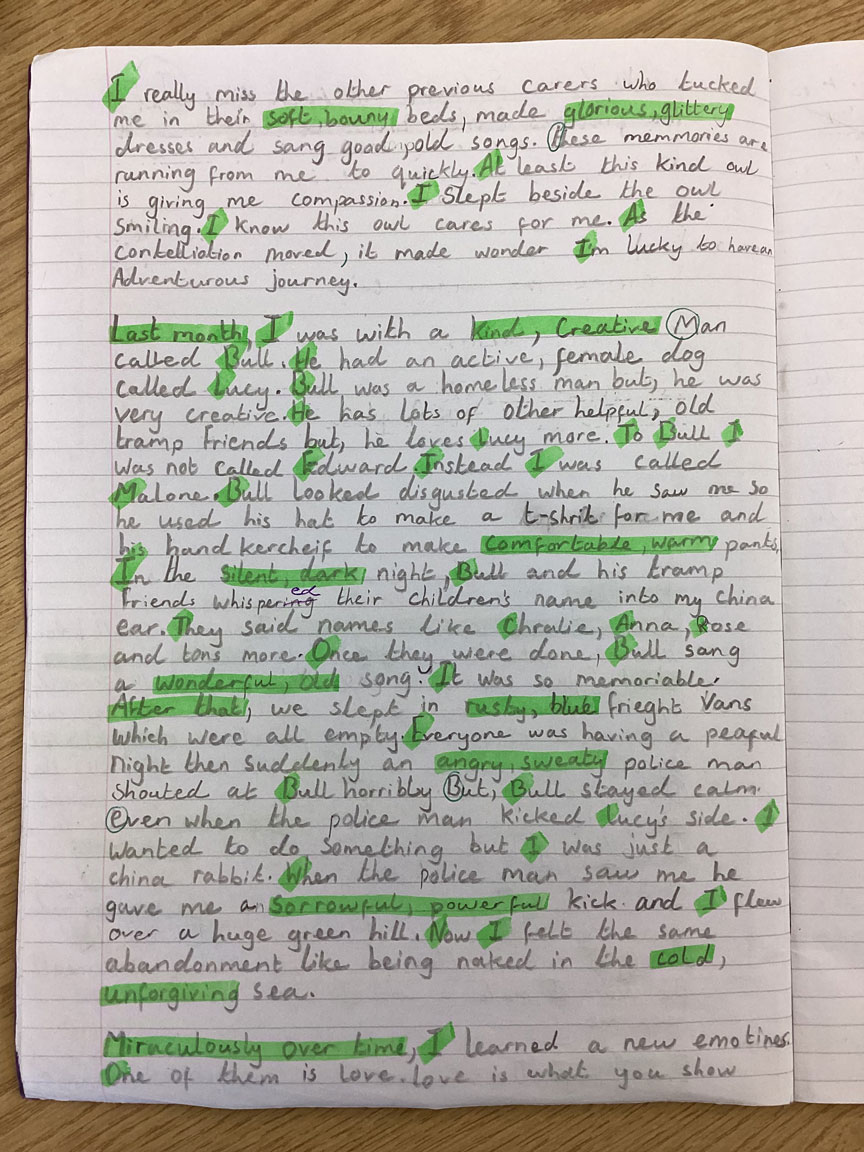 I really miss the other previous carers who tucked
me in their soft, bouny beds, made glorious, glittery
dresses and sang good, old songs. these memmories are
running from me to quickly. At least this kind owl
is giving me compassion. I slept beside the owl
smiling. I know this owl cares for me. As the
contelliation moved, it made wonder Im lucky to have an
Adventurous journey.
Last month, I was with a kind, creative Man
called Bull. He had an active, female dog
called Lucy. Bull was a homeless man but, he was
very creative. He has lots of other helpful, old
tramp friends but, he loves Lucy more. To Bull I
was not called Edward. Instead I was called
Malone. Bull looked disgusted when he saw me so
he used his hat to make a t-shrit for me and
his hand kercheif to make comfortable, warm pants.
In the silent, dark night, Bull and his tramp
friends whispered their children's name into my china
ear. They said names like Chralie, Anna, Rose
and tons more. Once they were done, Bull sang
a wonderful, old song. It was so memoriable.
After that, we slept in rusty, blue frieght Vans
which were all empty. Everyone was having a peaful
night then suddenly an angry, sweaty police man
shouted at Bull horribly But, Bull stayed calm
even when the police man kicked Lucy's side. I
wanted to do something but I was just a
china rabbit. When the police man saw me he
gave me an sorrowful, powerful kick and I flew
over a huge green hill. Now I felt the same
abandonment like being naked in the cold,
unforgiving sea.
Miraculously over time, I learned a new emotines.
One of them is love. love is what you show